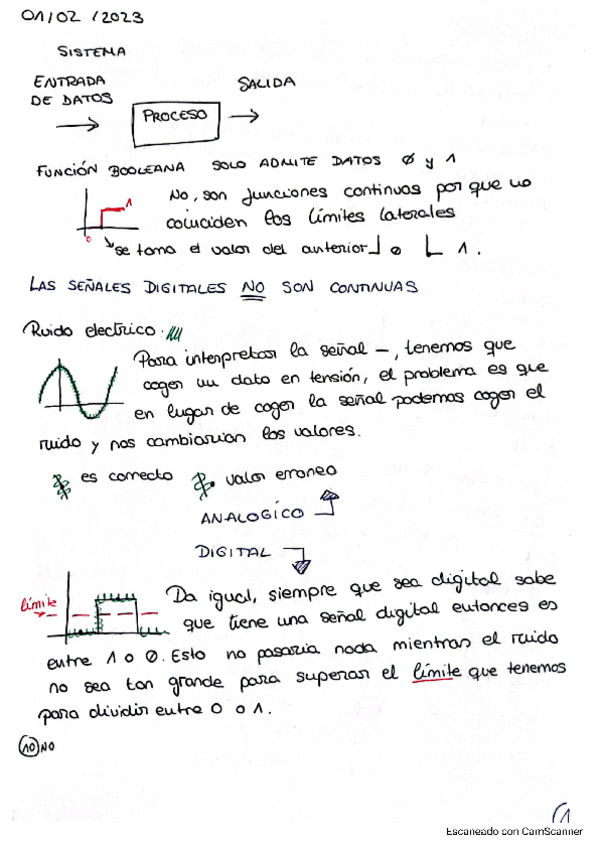 01/02/2023
SISTEMA
ENTRADA
DE DATOS
PROCESO
SALIDA
FUNCIÓN BOOLEANA SOLO ADMITE DATOS 0 y 1
No, son funciones continuas por que no
coinciden los límites laterales
1
0
se toma el valor del anterior 0 1.
LAS SEÑALES DIGITALES NO SON CONTINUAS
Ruido electrico:
Para interpretar la señal –, tenemos que
coger un dato en tensión, el problema es que
en lugar de coger la señal podemos coger el
ruido y nos cambiarian los valores.
es correcto valor erroneo
ANALOGICO
DIGITAL
límite
Da igual, siempre que sea digital sabe
que tiene una señal digital entonces es
entre 1 o 0. Esto no pasaria nada mientras el ruido
no sea tan grande para superar el límite que tenemos
para dividir entre 0 o 1.
10 NO
1
Escaneado con CamScanner